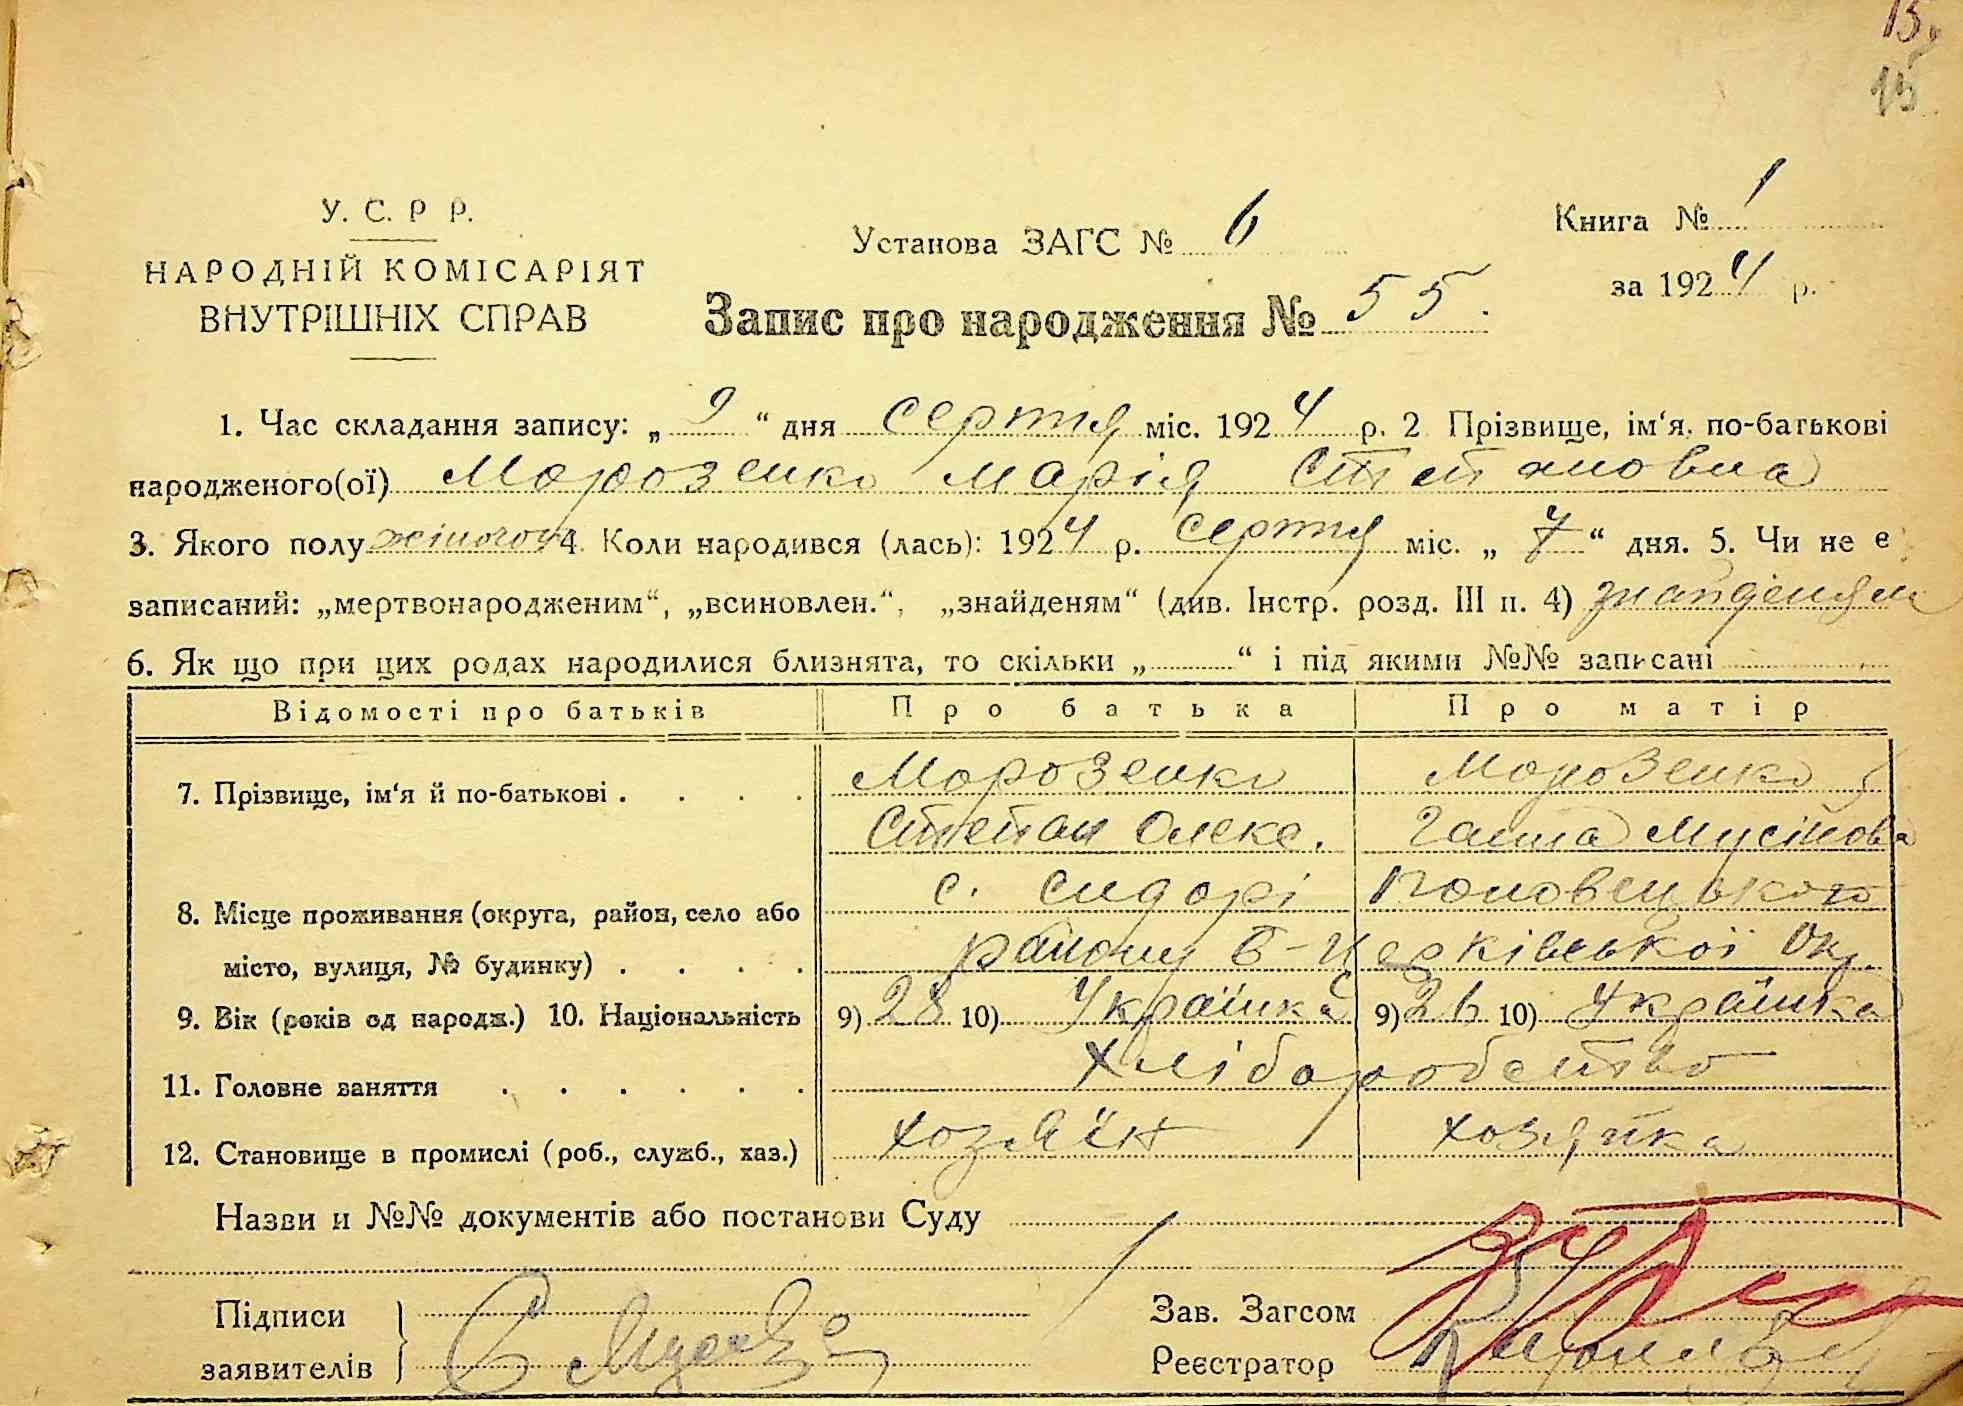 15.
15
У. С. Р Р.
НАРОДНІЙ КОМІСАРІЯТ
ВНУТРІШНІХ СПРАВ
Установа ЗАГС № 6
Книга № 1
за 1924 р.
Запис про народження № 55.
1. Час складання запису: „ 9 “ дня серпня міс. 1924 р. 2 Прізвище, ім‘я, по-батькові
народженого(ої) Морозенко Марія Степановна
3. Якого полу жіночого 4. Коли народився (лась): 1924 р. серпня міс. „ 7 “ дня. 5. Чи не є
записаний: „мертвонародженим“, „всиновлен.“, „знайденям“ (див. Інстр. розд. III п. 4) знайденям
6. Як що при цих родах народилися близнята, то скільки „ “ і під якими №№ записані
Відомості про батьків Про батька Про матір
7. Прізвище, ім‘я й по-батькові . . . . Морозенко Морозенко
Степан Олекс. Ганна Мусіївна
с. Сидорі Половецького
8. Місце проживання (округа, район, село або
місто, вулиця, № будинку) . . . . району Б-Церківської Окр.
9. Вік (років од народж.) 10. Національність 9) 28 10) Українка 9) 26 10) Українка
11. Головне заняття . . . . . . хліборобство
12. Становище в промислі (роб., служб., хаз.) хозяїн хозяйка
Назви и №№ документів або постанови Суду
Підписи
заявителів
Зав. Загсом
Реєстратор